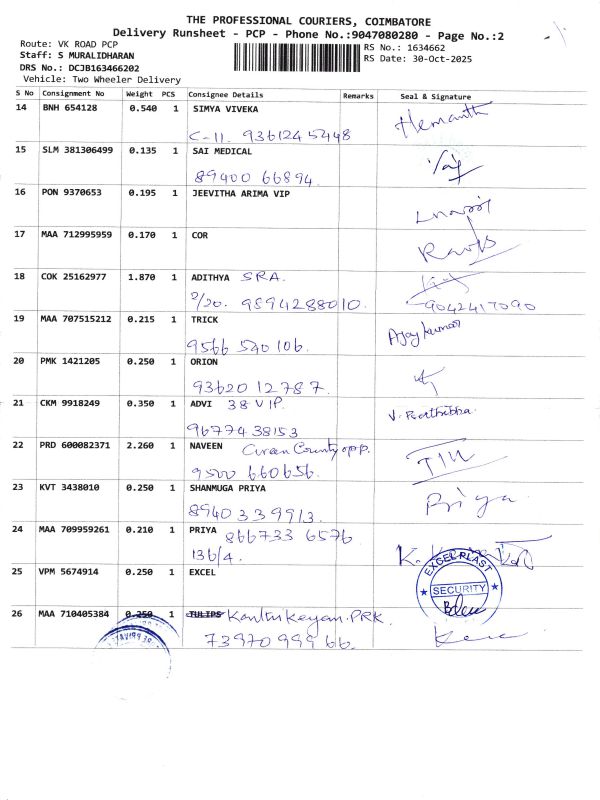 THE PROFESSIONAL COURIERS, COIMBATORE
Delivery Runsheet - PCP - Phone No.:9047080280 - Page No.:2
Route: VK ROAD PCP
Staff: S MURALIDHARAN
DRS No.: DCJB163466202
Vehicle: Two Wheeler Delivery
RS No.: 1634662
RS Date: 30-Oct-2025
S No Consignment No Weight PCS Consignee Details Remarks Seal & Signature
14 BNH 654128 0.540 1 SIMYA VIVEKA Hemanth
C-11. 9361245448
15 SLM 381306499 0.135 1 SAI MEDICAL
89400 66894.
16 PON 9370653 0.195 1 JEEVITHA ARIMA VIP
17 MAA 712995959 0.170 1 COR
18 COK 25162977 1.870 1 ADITHYA SRA.
2/20. 9894288010. 9042417090
19 MAA 707515212 0.215 1 TRICK Ajay kumar
9566 540 106.
20 PMK 1421205 0.250 1 ORION
93620 12787.
21 CKM 9918249 0.350 1 ADVI 38 VIP.
96774 38153
22 PRD 600082371 2.260 1 NAVEEN Green County opp.
9500 660656.
23 KVT 3438010 0.250 1 SHANMUGA PRIYA Priya
8940 339913.
24 MAA 709959261 0.210 1 PRIYA 866733 6576
136/4.
25 VPM 5674914 0.250 1 EXCEL
EXCEL PLAST
SECURITY
26 MAA 710405384 0.250 1 TULIPS Karthikeyan. PRK.
73970 999 66.